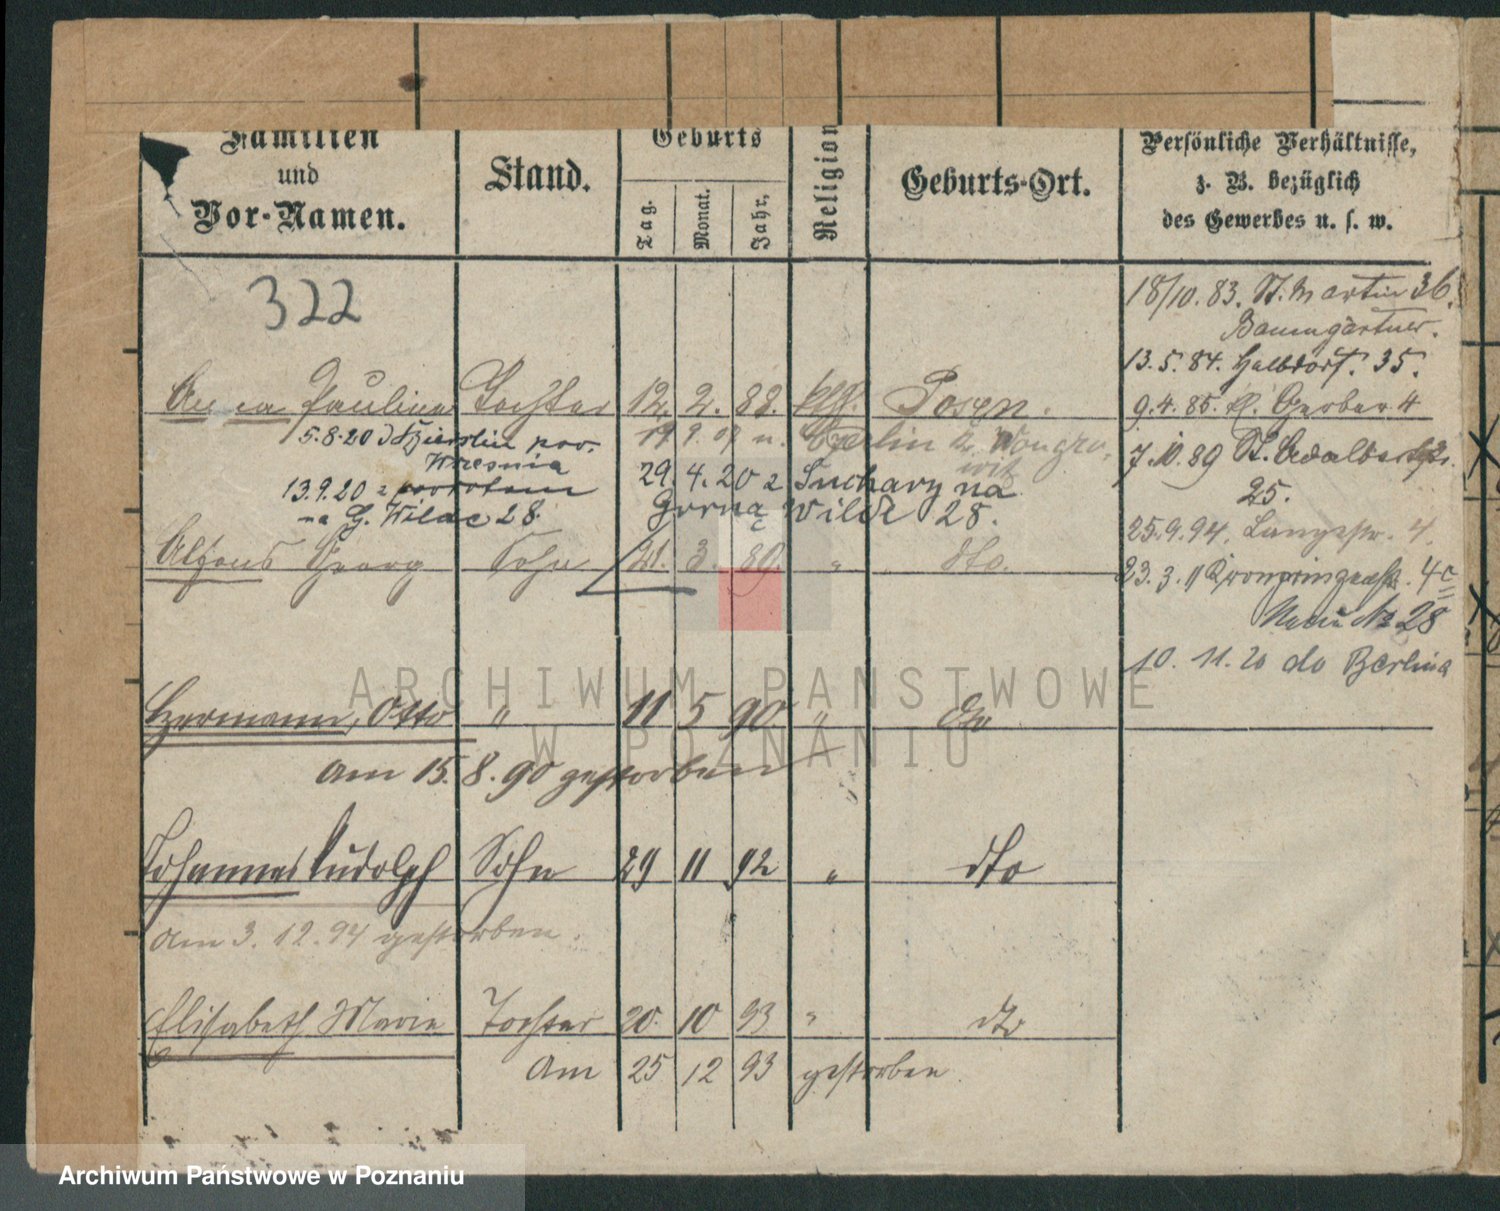 Familien
und
Vor-Namen.
Stand.
Geburts
Tag.
Monat.
Jahr,
Religion
Geburts-Ort.
Persönliche Verhältnisse,
z. B. bezüglich
des Gewerbes u. s. w.
322
18/10. 83. St. Martin 36.
Baumgärtner.
13. 5. 84. Halbdorf. 35.
Anna Pauline Tochter 12. 2. 88. Posen.
9. 4. 85. kl. Gerber 4
5.8.20 pow.
Września
19 9. 07 n. Berlin
7. 10. 89 St. Adalbertstr.
25.
29. 4. 20 z Suchary na
13.9.20 z powrotem
na G. Wilda 28.
Górną Wildę 28.
25. 9. 94. Langestr. 4.
Alfons Georg Sohn 21. 3. 89. " dto.
23. 3. 11 Kronprinzenstr. 4c
No 28
10. 11. 20 do Berlina
Hermann, Otto " 11 5 90 " dto
am 15. 8. 90 gestorben
Johannes Rudolph Sohn 29 11 92 " dto
am 3. 12. 94 gestorben.
Elisabeth Marie Tochter 20. 10 93 " dto
Am 25 12 93 gestorben.
ARCHIWUM PAŃSTWOWE
W POZNANIU
Archiwum Państwowe w Poznaniu